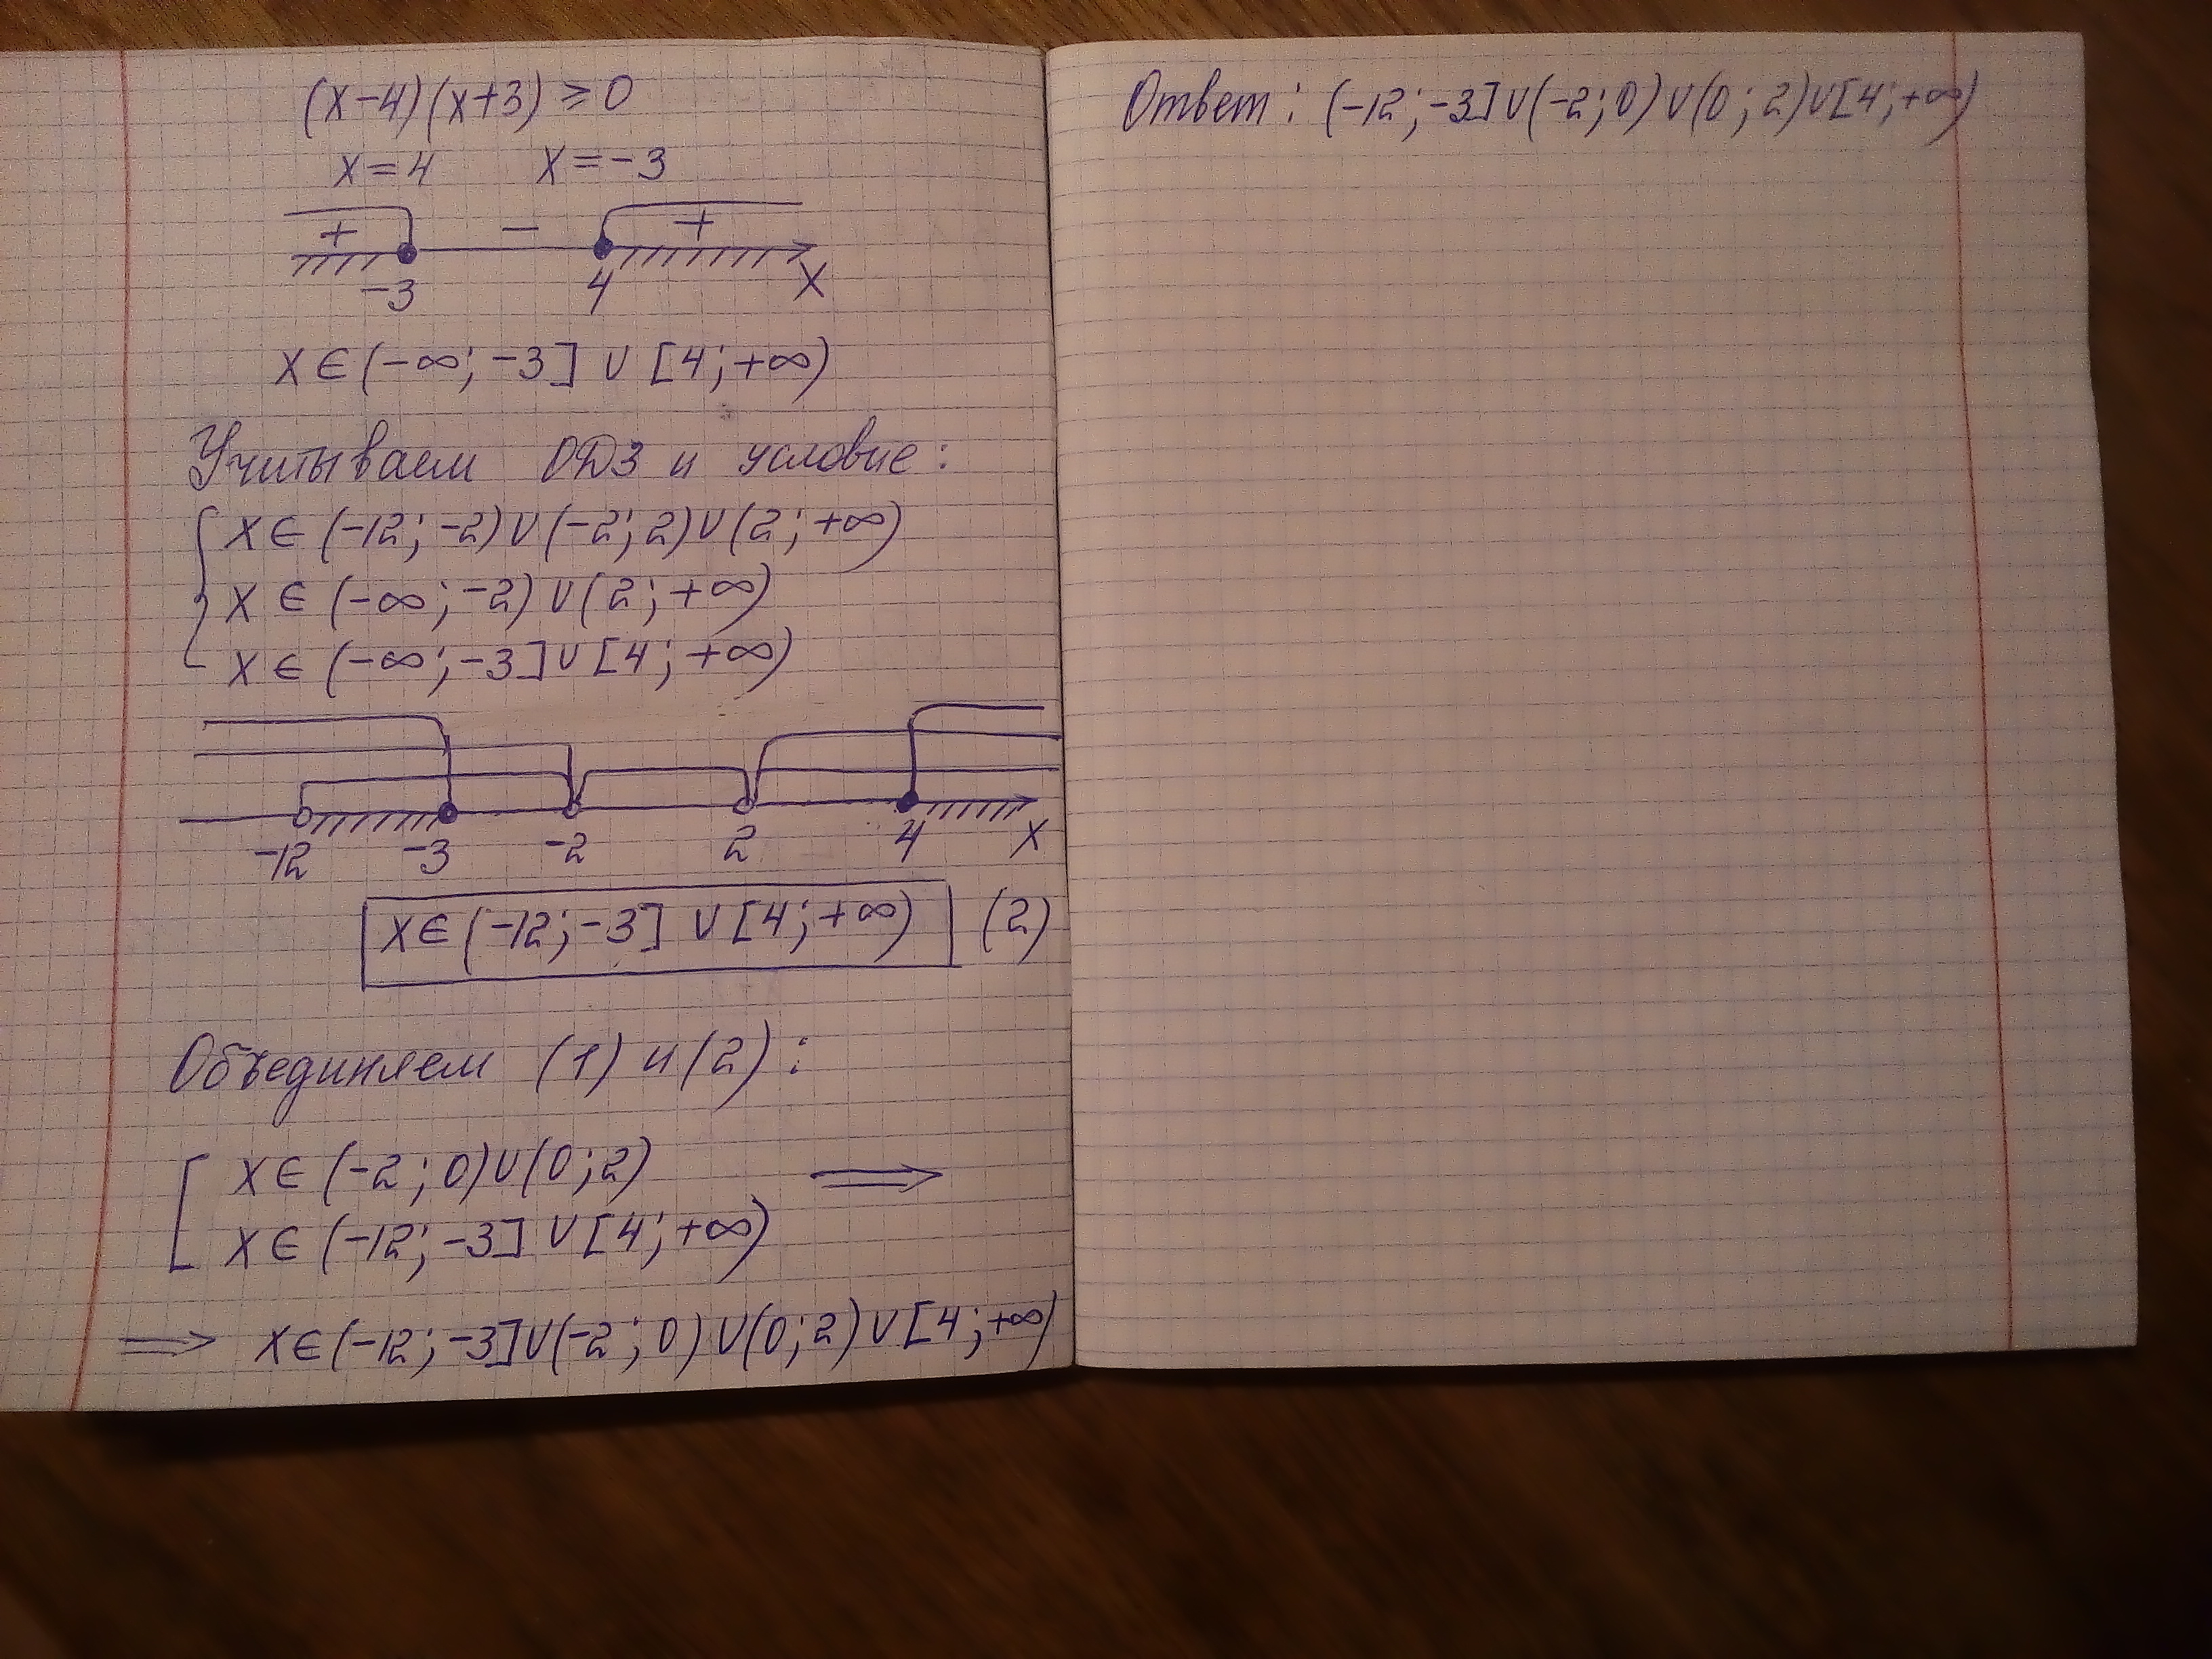 (x-4)(x+3) ≥ 0
x=4 x=-3
+ - +
-3 4 X
X∈(-∞; -3] ∪ [4; +∞)
Учитываем ОДЗ и условие:
{ X∈ (-12; -2)∪(-2; 2)∪(2; +∞)
X∈ (-∞; -2)∪(2; +∞)
X∈ (-∞; -3]∪[4; +∞)
-12 -3 -2 2 4 X
X∈(-12; -3] ∪[4; +∞) (2)
Объединяем (1) и (2):
[ X∈ (-2; 0)∪(0; 2) ⟹
X∈ (-12; -3] ∪[4; +∞)
⟹ X∈(-12; -3]∪(-2; 0)∪(0; 2)∪[4; +∞)
Ответ: (-12; -3]∪(-2; 0)∪(0; 2)∪[4; +∞)